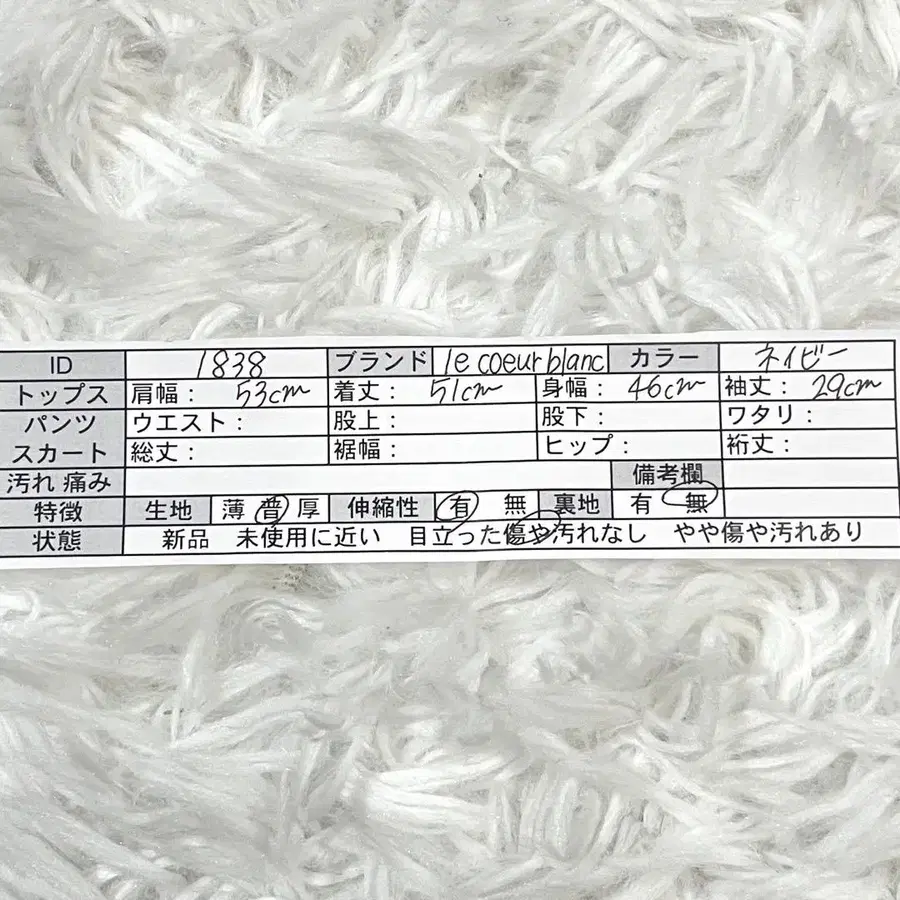 ID 1838 ブランド le coeur blanc カラー ネイビー
トップス 肩幅： 53cm 着丈： 51cm 身幅： 46cm 袖丈： 29cm
パンツ ウエスト： 股上： 股下： ワタリ：
スカート 総丈： 裾幅： ヒップ： 裄丈：
汚れ 痛み 備考欄
特徴 生地 薄 普 厚 伸縮性 有 無 裏地 有 無
状態 新品 未使用に近い 目立った傷や汚れなし やや傷や汚れあり